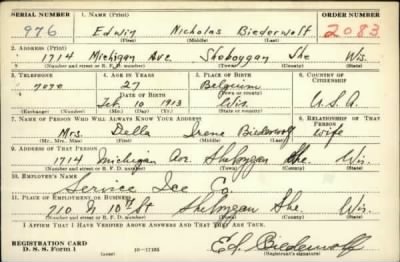 SERIAL NUMBER 1. NAME (Print) ORDER NUMBER
976 Edwin Nicholas Biederwolf 2083
(First) (Middle) (Last)
2. ADDRESS (Print)
1714 Michigan Ave. Sheboygan She Wis.
(Number and street or R. F. D. number) (Town) (County) (State)
3. TELEPHONE 4. AGE IN YEARS 5. PLACE OF BIRTH 6. COUNTRY OF CITIZENSHIP
27 Belgium
DATE OF BIRTH (Town or county)
Feb. 10 1913 Wis. U.S.A.
(Exchange) (Number) (Mo.) (Day) (Yr.) (State or country)
7. NAME OF PERSON WHO WILL ALWAYS KNOW YOUR ADDRESS 8. RELATIONSHIP OF THAT PERSON
Mrs. Della Irene Biederwolf wife
(Mr., Mrs., Miss) (First) (Middle) (Last)
9. ADDRESS OF THAT PERSON
1714 Michigan Av. Sheboygan She. Wis.
(Number and street or R. F. D. number) (Town) (County) (State)
10. EMPLOYER'S NAME
Service Ice Co.
11. PLACE OF EMPLOYMENT OR BUSINESS
710 N 10th St Sheboygan She. Wis.
(Number and street or R. F. D. number) (Town) (County) (State)
I AFFIRM THAT I HAVE VERIFIED ABOVE ANSWERS AND THAT THEY ARE TRUE.
REGISTRATION CARD
D. S. S. Form 1 16-17105 Ed. Biederwolf
(Registrant's signature)